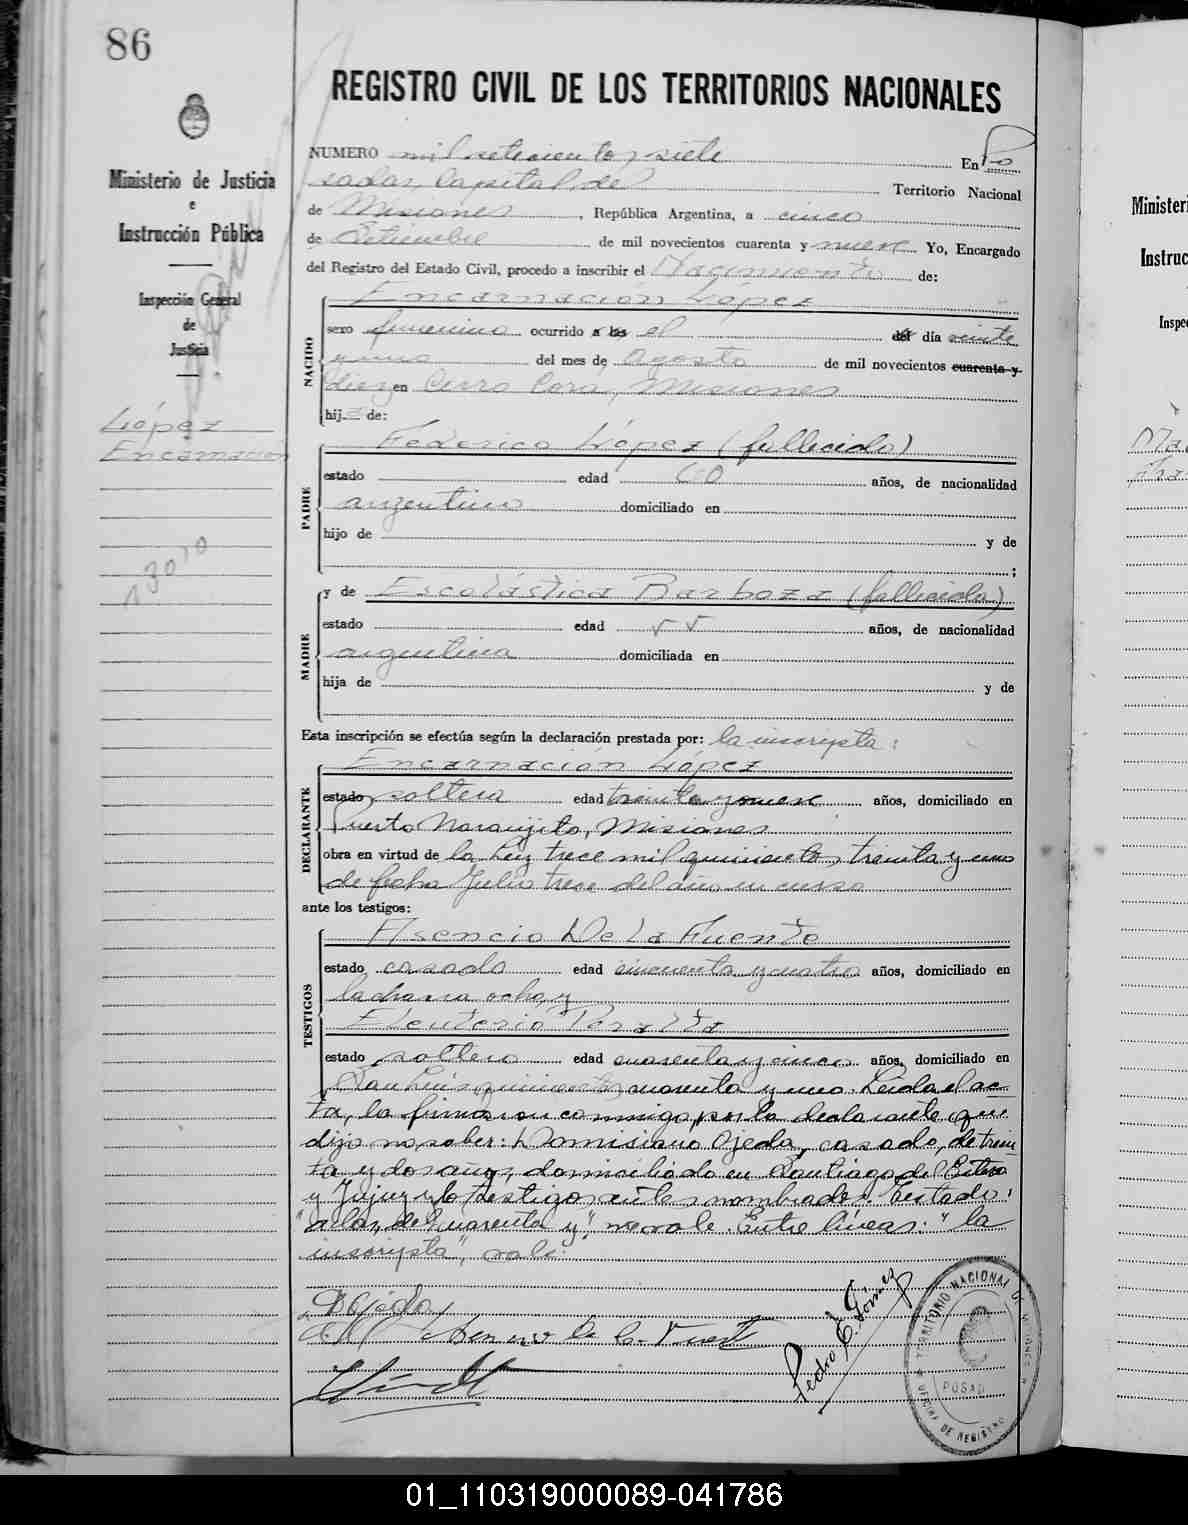 86
REGISTRO CIVIL DE LOS TERRITORIOS NACIONALES
Ministerio de Justicia
e
Instrucción Pública
Inspección General
de
Justicia
López
Encarnación
NUMERO mil setecientos siete En Po
sadas, Capital del Territorio Nacional
de Misiones, República Argentina, a cinco
de Setiembre de mil novecientos cuarenta y nueve Yo, Encargado
del Registro del Estado Civil, procedo a inscribir el Nacimiento de:
NACIDO
Encarnación López
sexo femenino ocurrido a las el del día veinte
y uno del mes de agosto de mil novecientos cuarenta y
diez en Cerro Cora, Misiones
hija de:
PADRE
Federico López (fallecido)
estado edad 60 años, de nacionalidad
argentino domiciliado en
hijo de y de
;
MADRE
y de Escolástica Barboza (fallecida)
estado edad años, de nacionalidad
argentina domiciliada en
hija de y de
Esta inscripción se efectúa según la declaración prestada por: la inscripta:
DECLARANTE
Encarnación López
estado soltera edad treinta y nueve años, domiciliado en
Puerto Naranjito, Misiones
obra en virtud de la Ley trece mil quinientos treinta y uno
de fecha Julio trece del año en curso
ante los testigos:
TESTIGOS
Asencio De la Fuente
estado casado edad cincuenta y cuatro años, domiciliado en
la chacra ocho, y
Eleuterio Peralta
estado soltero edad cuarenta y cinco años, domiciliado en
San Luis quinientos cuarenta y uno. Leida el ac-
ta, la firmaron conmigo, por la declarante que
dijo no saber: Damisiano Ojeda, casado, de trein
ta y dos años, domiciliado en Santiago del Estero
y Jujuy y los testigos nombrados. Testado:
"a las, del, cuarenta y", no vale. Entre líneas: "la
inscripta", vale.
DOjeda
Pedro C. Gómez
TERRITORIO NACIONAL DE MISIONES
POSADAS
OFICINA DE REGISTRO
Minister
Instruc
Inspe
01_110319000089-041786